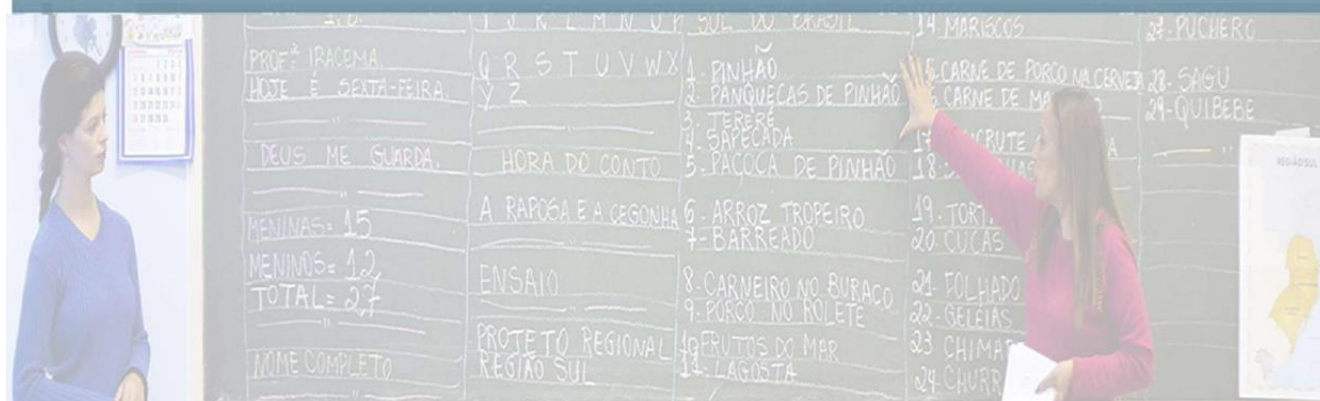 PROFª IRACEMA.
HOJE É SEXTA-FEIRA.
DEUS ME GUARDA.
MENINAS= 15
MENINOS= 12
TOTAL= 27
NOME COMPLETO
Q R S T U V W X
Y Z
HORA DO CONTO
A RAPOSA E A CEGONHA
ENSAIO
PROJETO REGIONAL
REGIÃO SUL
SUL DO BRASIL
1- PINHÃO
2- PANQUECAS DE PINHÃO
3- TERERÉ
4- SAPECADA
5- PAÇOCA DE PINHÃO
6- ARROZ TROPEIRO
7- BARREADO
8- CARNEIRO NO BURACO
9- PORCO NO ROLETE
10- FRUTOS DO MAR
11- LAGOSTA
14- MARISCOS
CARNE DE PORCO NA CERVEJA
CARNE DE
17-
18-
19- TORT
20 CUCAS
21- FOLHADO
22- GELÉIAS
23 CHIMA
24- CHURR
27- PUCHERO
28- SAGU
29- QUIBEBE
REGIÃO SUL